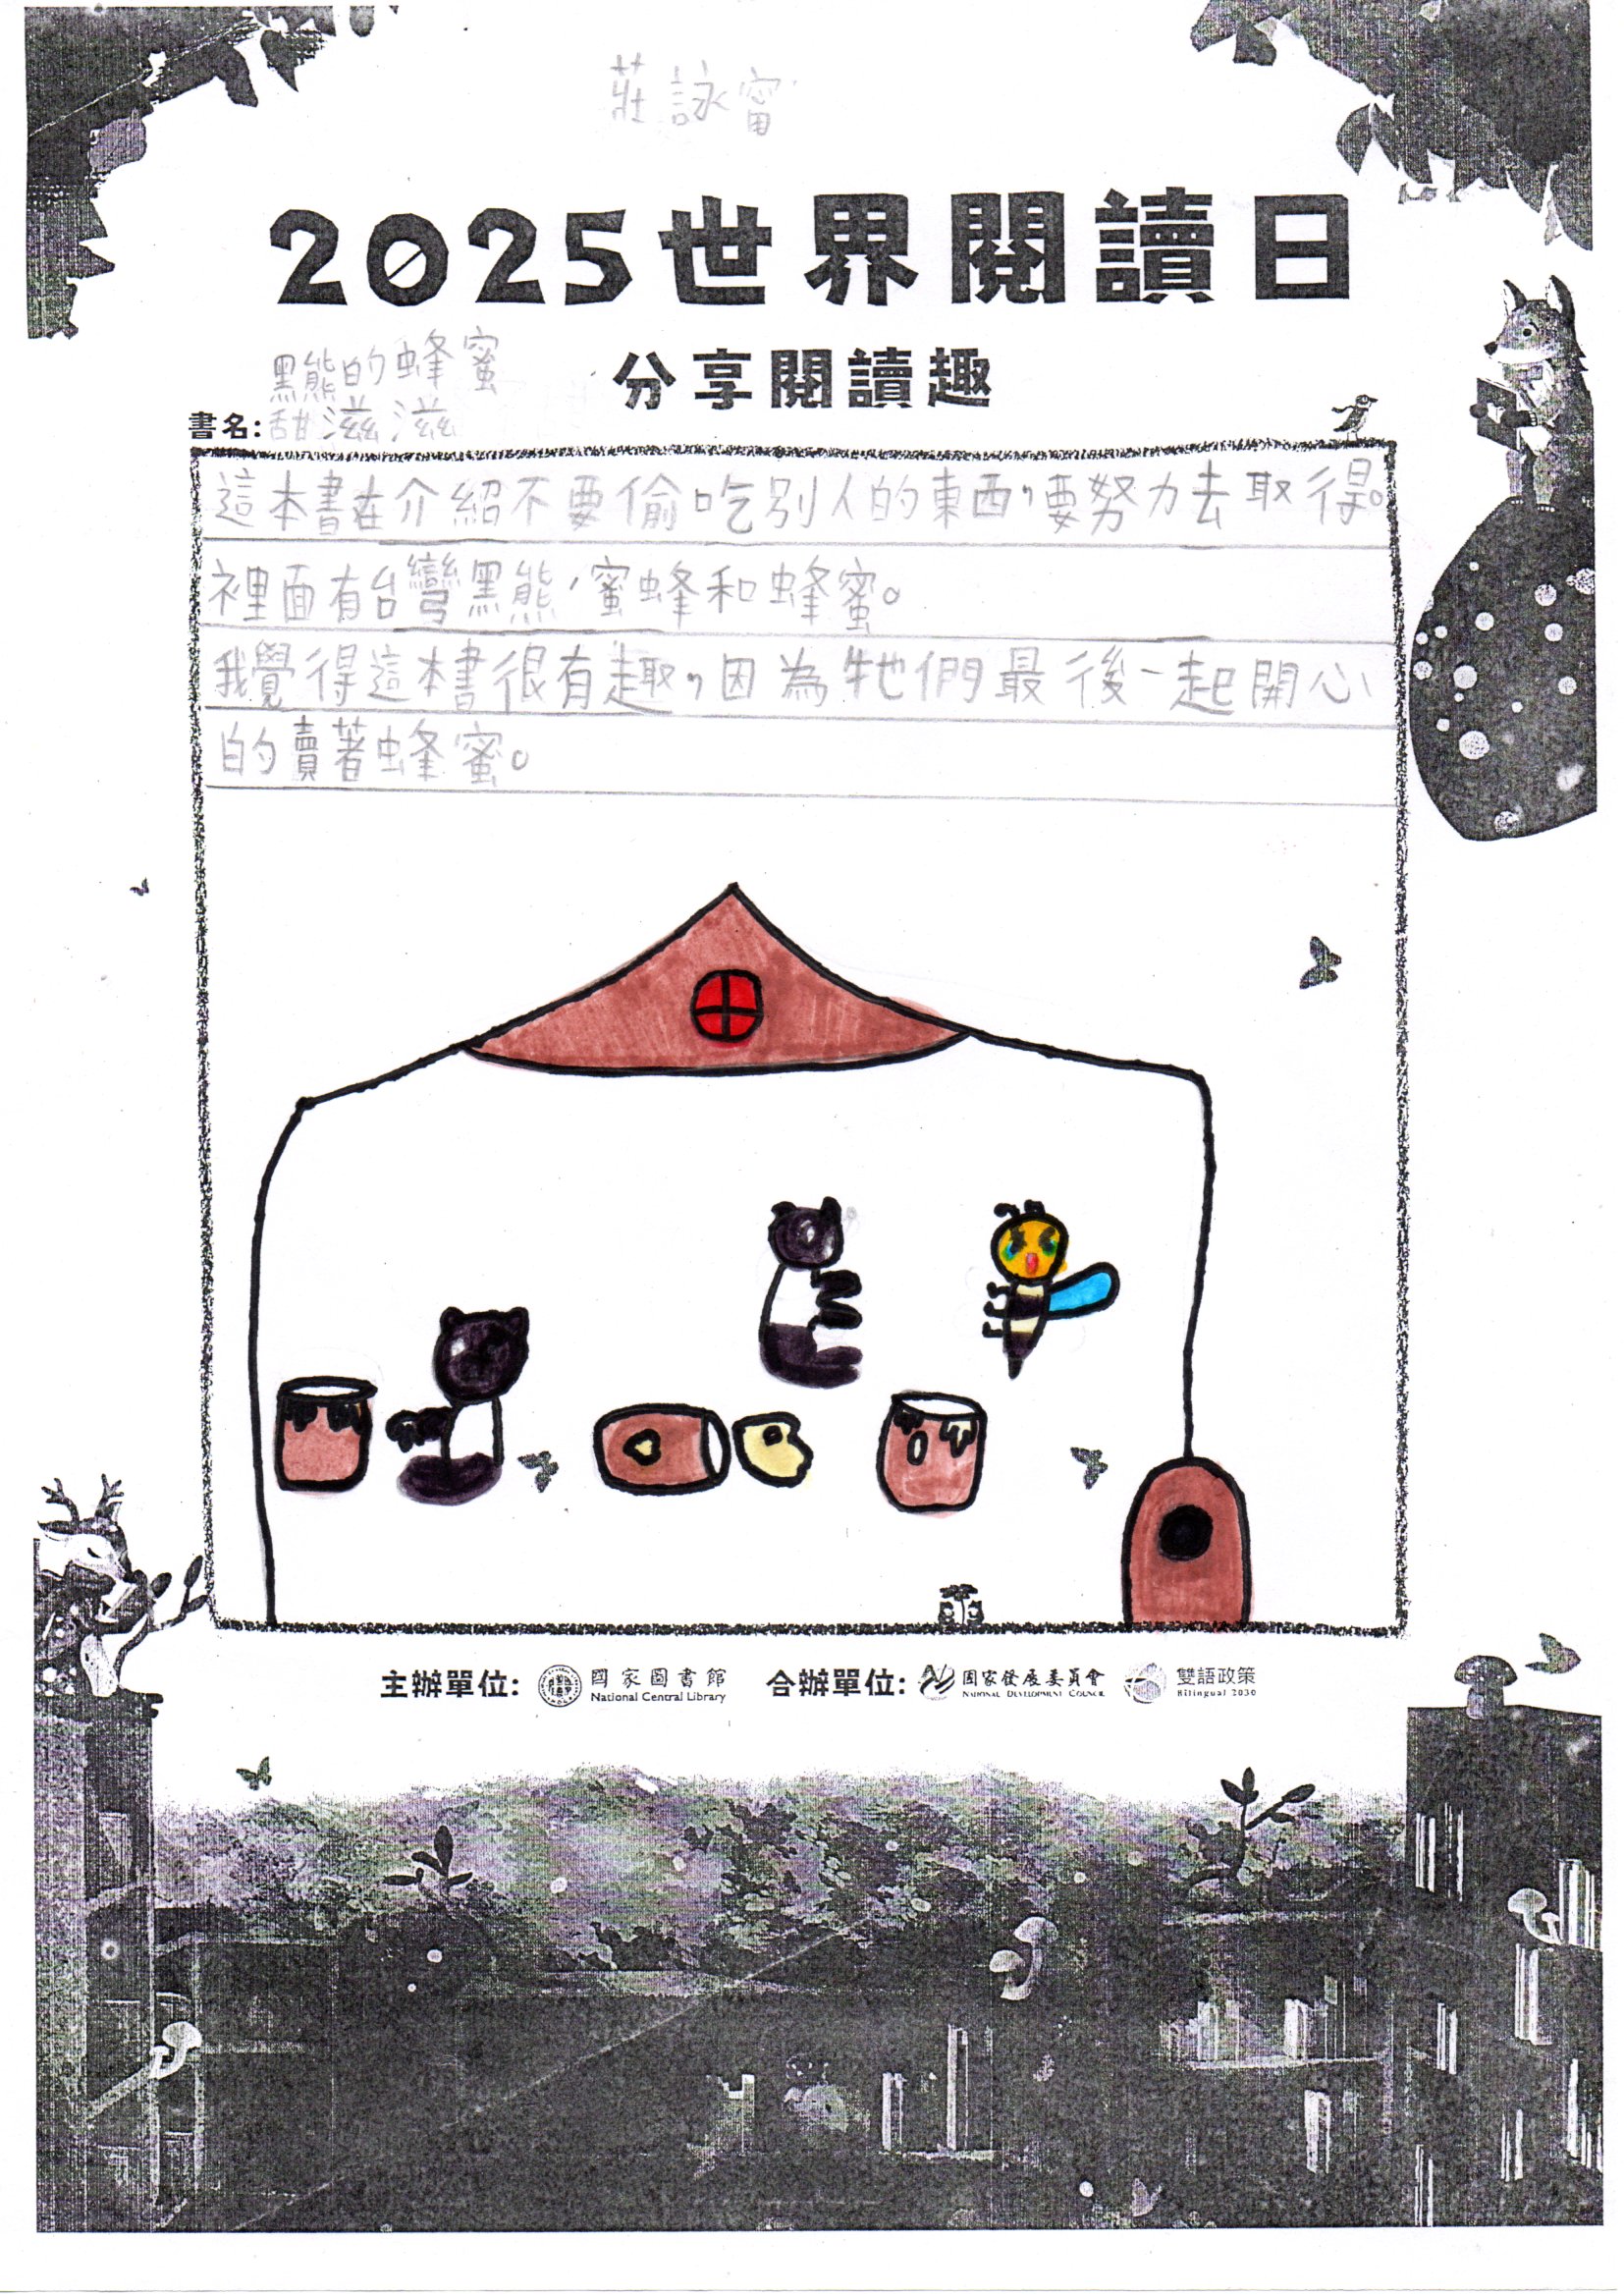 莊詠甯
2025世界閱讀日
分享閱讀趣
黑熊的蜂蜜
書名:甜滋滋
這本書在介紹不要偷吃別人的東西,要努力去取得。
裡面有台彎黑熊,蜜蜂和蜂蜜。
我覺得這本書很有趣,因為牠們最後一起開心
的賣著蜂蜜。
主辦單位: 國家圖書館 合辦單位: 國家發展委員會 雙語政策
National Central Library NATIONAL DEVELOPMENT COUNCIL Bilingual 2030